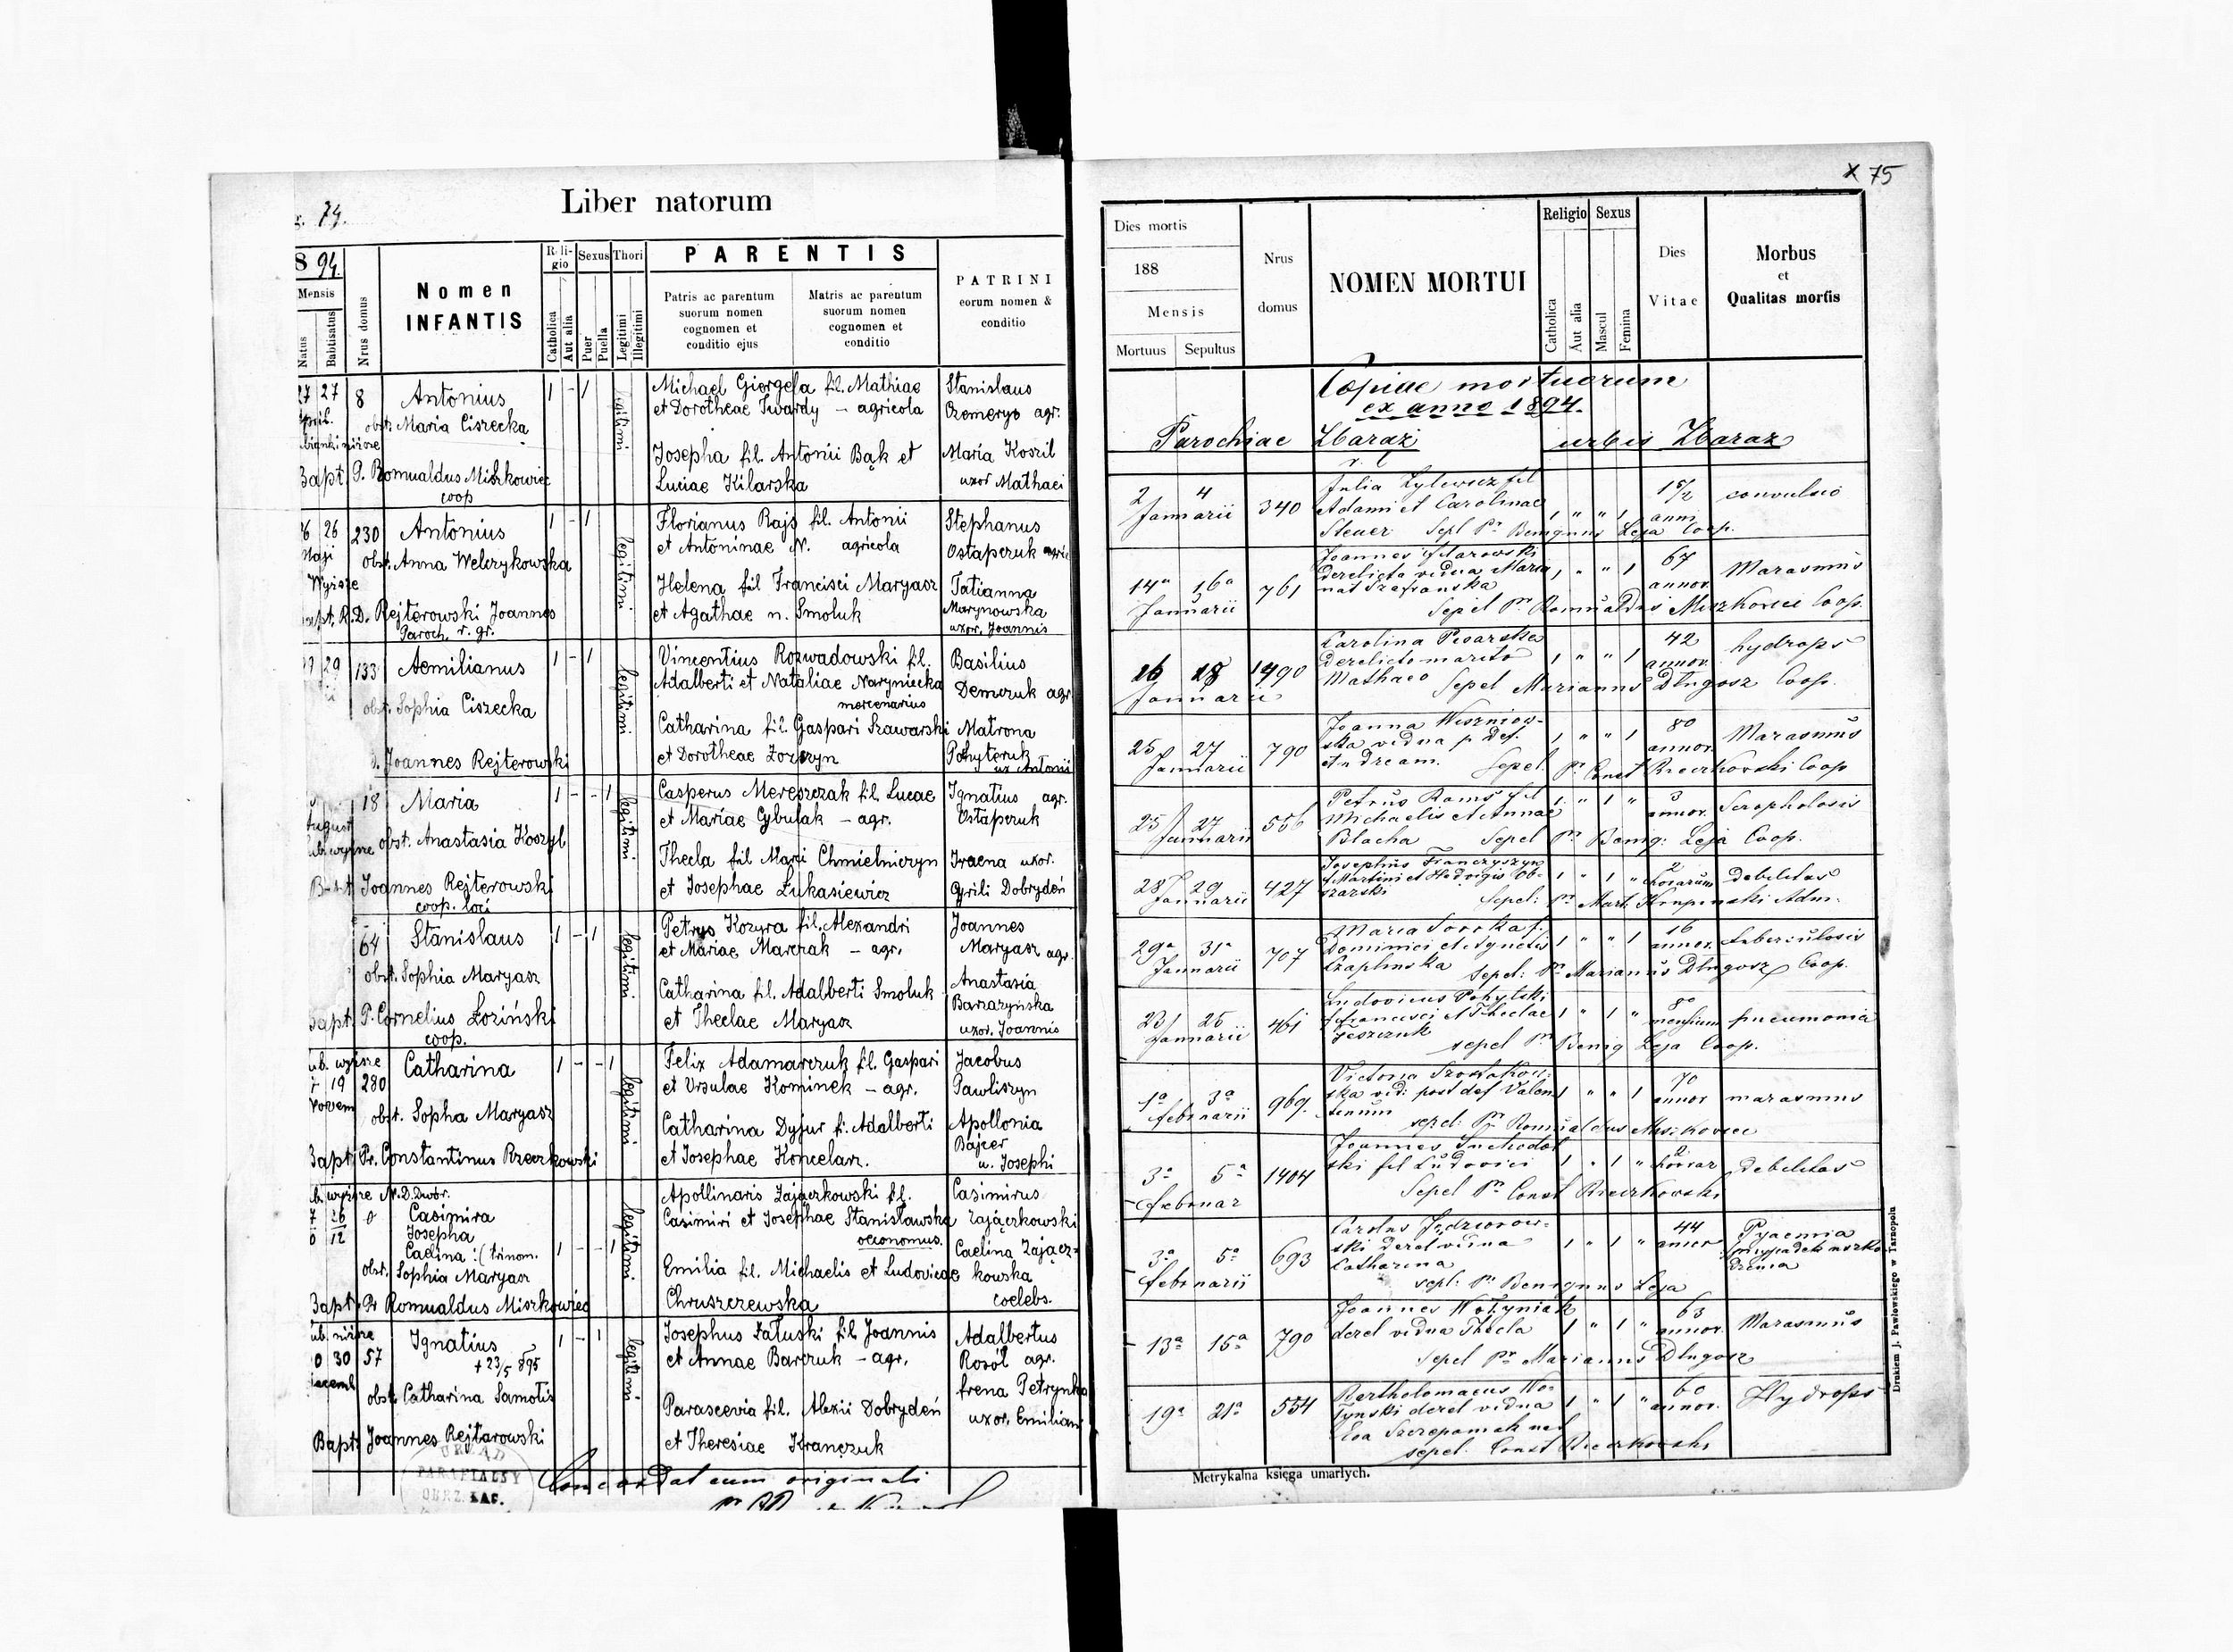 74.
Liber natorum
8 94.
Mensis
Natus
Babtisatus
Nrus domus
Nomen
INFANTIS
Reli-
gio
Catholica
Aut alia
Sexus
Puer
Puella
Thori
Legitimi
Illegitimi
PARENTIS
Patris ac parentum
suorum nomen
cognomen et
conditio ejus
Matris ac parentum
suorum nomen
cognomen et
conditio
PATRINI
eorum nomen &
conditio
27 27 8 Antonius 1 - 1 legitimi
obst. Maria Ciszecka
Bapt. P. Romualdus Miszkowiec
coop
Michael Giergela fil. Mathiae
et Dorotheae Twardy - agricola
Josepha fil. Antonii Bąk et
Luciae Kilarska
Stanislaus
Czemerys agr.
Maria Koszil
uxor Mathaei
6 26 230 Antonius 1 - 1 legitimi
Maji
obst. Anna Welczykowska
Wyższe
Bapt. R.D. Rejterowski Joannes
Paroch. r. gr.
Florianus Rajs fil. Antonii
et Antoninae N. agricola
Helena fil Francisci Maryasz
et Agathae n. Smoluk
Stephanus
Ostapczuk agric
Tatianna
Marynowska
uxor. Joannis
29 133 Aemilianus 1 - 1 legitimi
obst. Sophia Ciszecka
Joannes Rejterowski
Vincentius Rozwadowski fil.
Adalberti et Nataliae Naryniecka
mercenarius
Catharina fil. Gaspari Szawarski
et Dorotheae
Basilius
Demczuk agr.
Matrona
Pohyteruk
ux Antonii
18 Maria 1 - - 1 legitimi
August
obst. Anastasia Koszyl
Joannes Rejterowski
coop. loci
Casperus Mereszczak fil. Lucae
et Mariae Cybulak - agr.
Thecla fil Marci Chmielniczyn
et Josephae Łukasiewicz
Ignatius agr.
Ostapczuk
Iraena uxor.
Cyrili Dobrydeń
64 Stanislaus 1 - 1 legitimi
obst. Sophia Maryasz
Bapt. P. Cornelius Łoziński
coop.
Petrus Kozyra fil. Alexandri
et Mariae Marczak - agr.
Catharina fil. Adalberti Smoluk
et Theclae Maryasz
Joannes
Maryasz agr.
Anastasia
Barzazyńska
uxor. Joannis
ub. wyższe Catharina 1 - - 1 legitimi
7 19 280
Novem
obst. Sopha Maryasz
Bapt. Pr. Constantinus Rzeczkowski
Felix Adamarczuk fil. Gaspari
et Ursulae Kominek - agr.
Catharina Dyjur fi. Adalberti
et Josephae Koncelarz.
Jacobus
Pawliszyn
Apollonia
Bajcer
u. Josephi
b. wyższe N. D. Dwór.
7 26 0 Casimira
0 12 Josepha
Caelina :(trinom. 1 - - 1 legitimi
obst. Sophia Maryasz
Bapt. Pr Romualdus Miszkowiec
Apollinaris Zajączkowski fil.
Casimiri et Josephae Stanisławska
oeconomus.
Emilia fil. Michaelis et Ludovicae
Chruszczewska
Casimirus
Zajączkowski
Caelina Zającz-
kowska
coelebs.
ub. niższe Ignatius 1 - 1 legitimi
0 30 57 + 23/5 895
obst. Catharina Samotis
Bapt. Joannes Rejtarowski
Josephus Załuski fil Joannis
et Annae Barczuk - agr.
Parascevia fil. Alexii Dobrydeń
et Theresiae Krańczuk
Adalbertus
Rosół agr.
Irena Petrynka
uxor. Emiliani
URZĄD
PARAFIALNY
OBRZ. ŁAC.
Concordat cum originali
x 75
Dies mortis
188
Mensis
Mortuus
Sepultus
Nrus
domus
NOMEN MORTUI
Religio
Catholica
Aut alia
Sexus
Mascul
Femina
Dies
Vitae
Morbus
et
Qualitas mortis
Copiae mortuorum
ex anno 1894.
Parochiae Zbaraż
r. l
urbis Zbaraż
2 4 340 Julia Zylewicz fil
Januarii Adami et Carolinae 1 " " 1 anni convulsio
Steuer Sepl Pr Benignus Leja Coop.
14a 16a 761 Joannes
Januarii derelicta vidua Maria 1 " " 1 67 annor. Marasmus
nat Szafranska
Sepel Pr Romualdus Miszkowiec Coop.
16 18 1490 Carolina Pisarska 42 hydrops
Januarii derelicto marito 1 " " 1 annor.
Mathaeo Sepel Marianus Długosz Coop.
25 27 790 Joanna Wiszniow-
Januarii ska vidua p. def. 1 " " 1 80 annor. Marasmus
Andream. Sepel. Pr Const Rzeczkowski Coop
25 27 556 Petrus Roms fil 1 " 1 " 3 annor. Scropholosis
Januarii Michaelis et Annae
Blacha Sepel Pr Benig: Leja Coop.
28 29 427 Josephus Franczyszyn
Januarii f Martini et Hedvigis Ob- 1 " 1 " 2 horarum debilitas
szarski Sepel: Pr Mart: Krupinski Adm.
29a 31a 707 Maria Soroka f.
Januarii Dominici et Agnetis 1 " " 1 16 annor. tuberculosis
Czaplinska Sepel: Pr Marianus Długosz Coop.
23 25 461 Ludovicus Pohytski
Januarii f Francisci et Theclae 1 " 1 " 8 mensium pneumonia
Jeszczuk sepel Pr Benig Leja Coop.
1a 3a 969. Victoria Szostakow-
februarii ska vid: post def Valen 1 " " 1 70 annor marasmus
tinum sepel: Pr Romualdus Miszkowiec
3a 5a 1404 Joannes Suchodol
februar ski fil Ludovici 1 " 1 " 2 horar debilitas
Sepel Pr Const Rzeczkowski
3a 5a 693 Carolus Jędrzorow-
februarii ski derel vidua 1 " 1 " 44 annor Pyaemia
Catharina
sepl: Pr Benignus Leja
13a 15a 790 Joannes Wołyniak
derel vidua Thecla 1 " 1 " 63 annor. Marasmus
Sepel Pr Marianus Długosz
19a 21a 554 Bartholomaeus Wo-
łynski derel vidua 1 " 1 " 60 annor. Hydrops
Eva Szczepaniak nat
sepel. Const Rzeczkowski
Metrykalna księga umarłych.
Drukiem J. Pawłowskiego w Tarnopolu